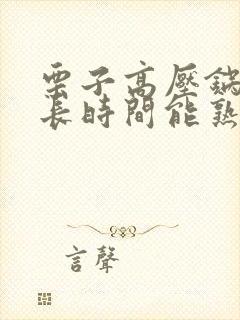 栗子高壓鍋
長時間能熟
言聲